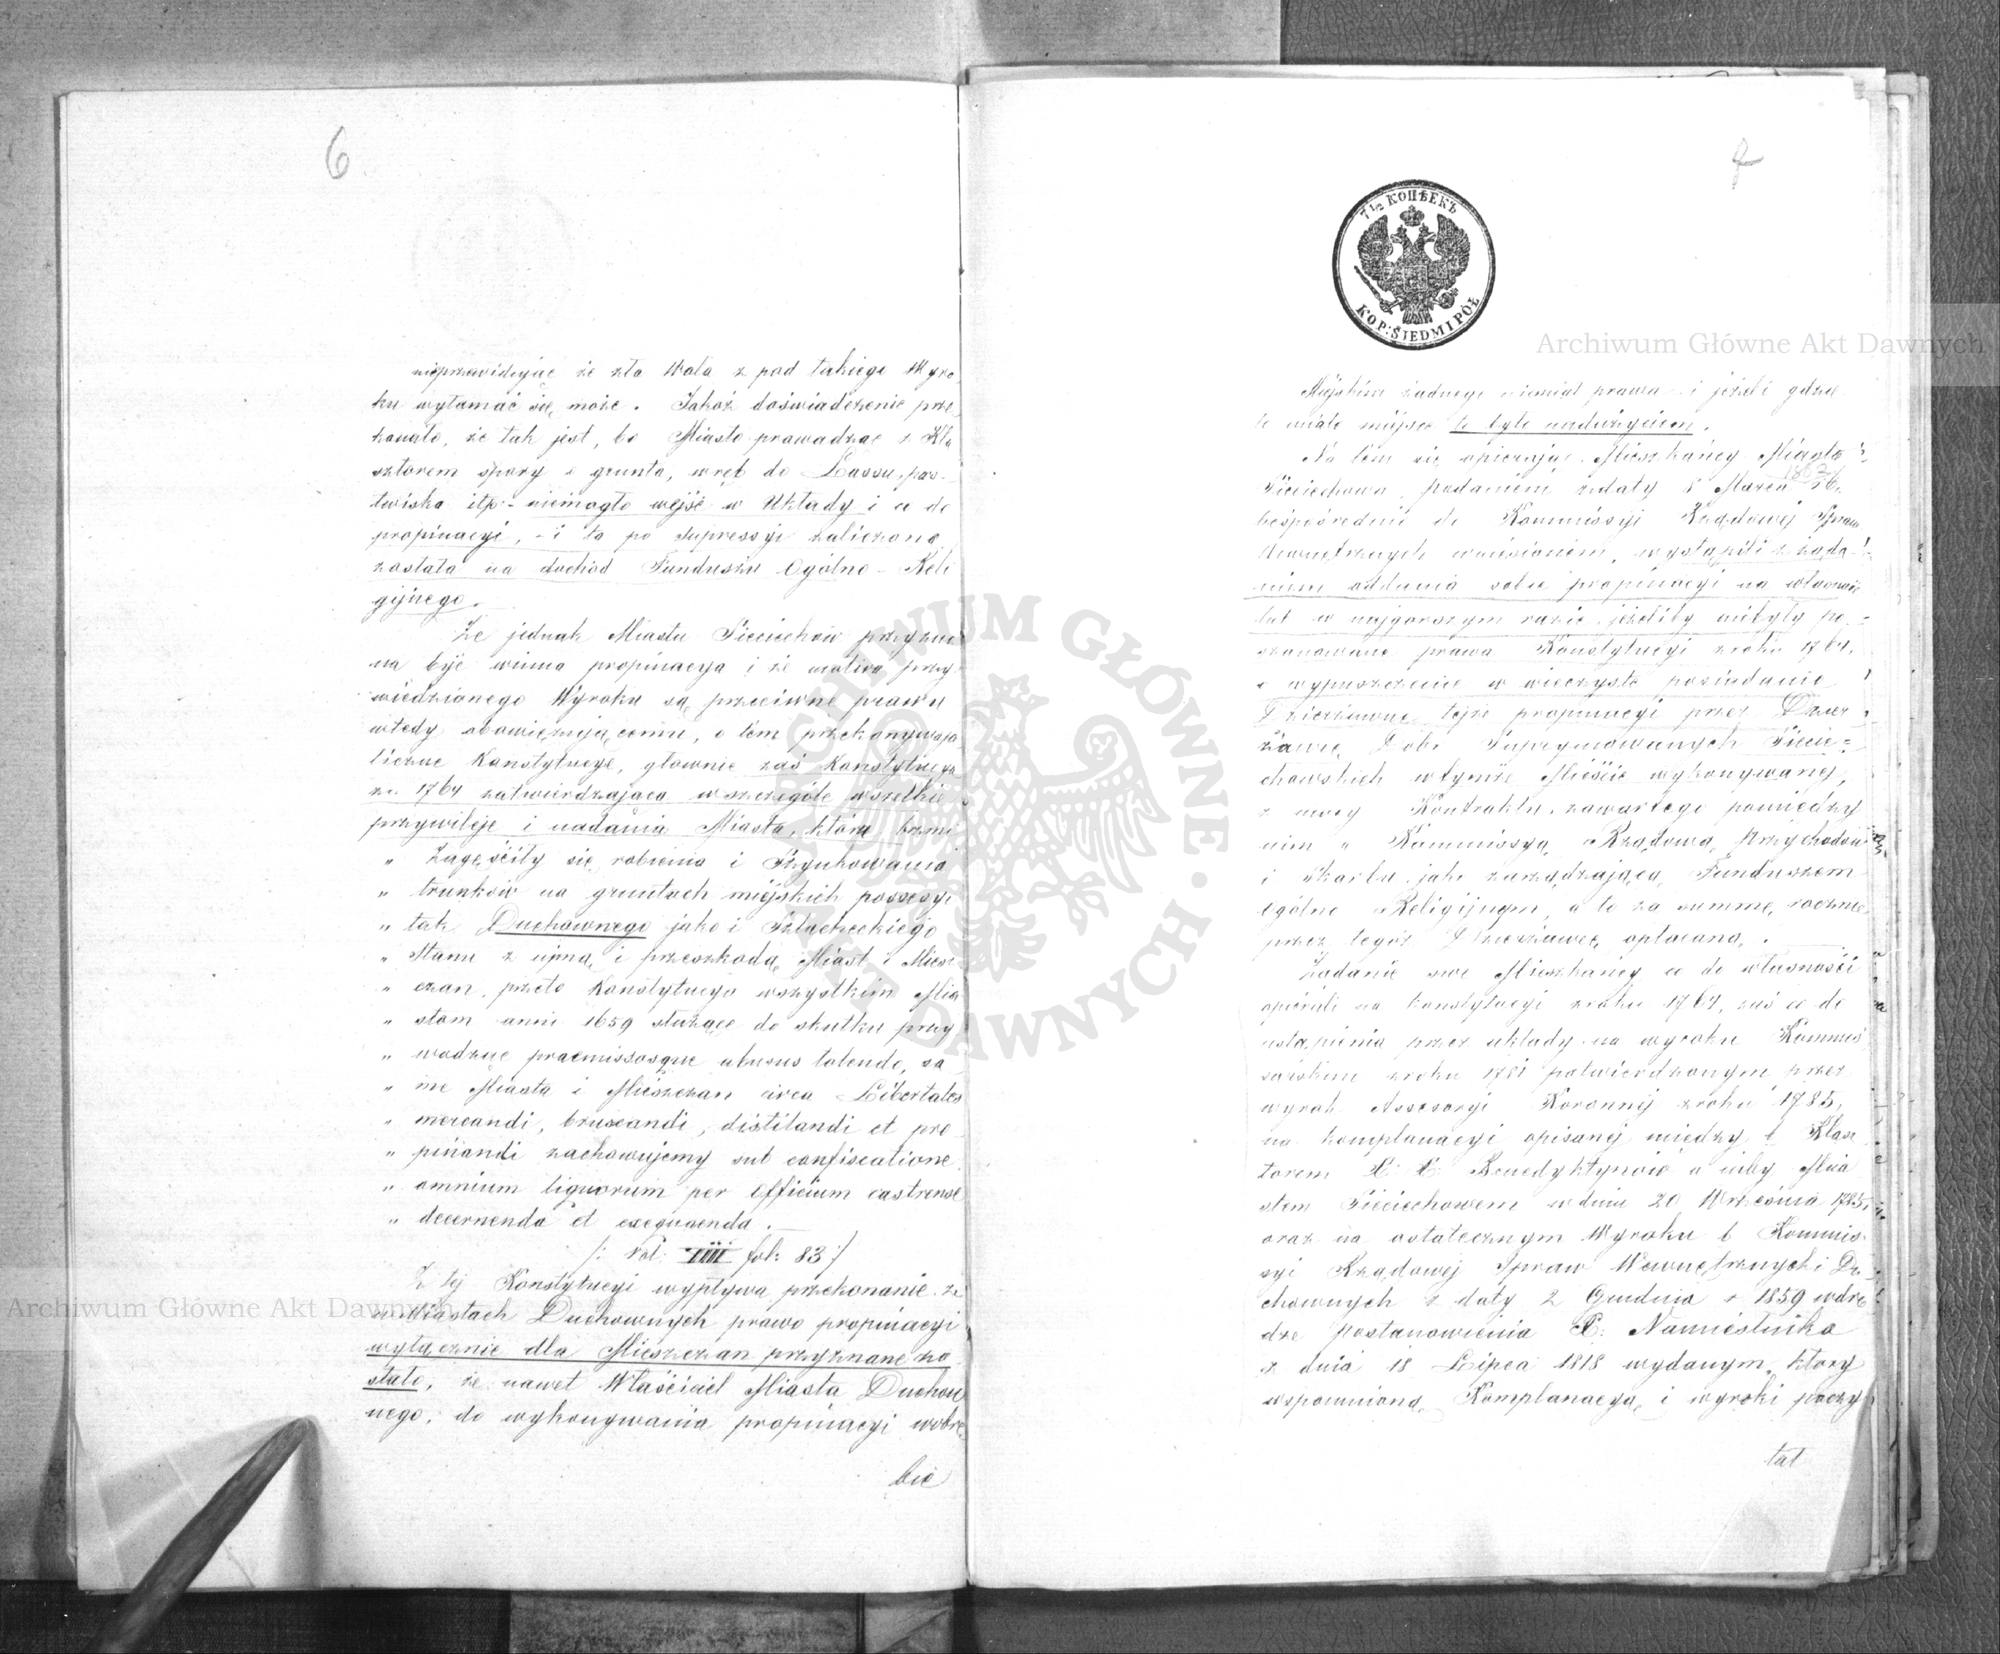 6
nieprzewidując że zła Wola z pod takiego Wyro-
ku wyłamać się może. Jakoż doświadczenie prze-
konało, że tak jest, bo Miasto prowadząc z Kla
sztorem spory o grunta, wręb do Lassu, pas-
twiska itp. niemogło wejść w Układy i co do
propinacyi, - i ta po supressyi zaliczona
została na dochód Funduszu Ogólno-Reli
gijnego.
Że jednak Miastu Sieciechów przyzna
na być winna propinacya i że motiva przy
wiedzionego Wyroku są przeciwne prawu
wtedy obowięzującemu, o tem przekonywają
liczne Konstytucye, głownie zaś Konstytucya
z r. 1764 zatwierdzająca w szczególe wszelkie
przywileje i nadania Miasta, która brzmi
„ Zagęściły się robienia i Szynkowania
„ trunków na gruntach miejskich possesyi
„ tak Duchownego jako i Szlacheckiego
„ Stanu z ujmą i przeszkodą Miast i Miesz
„ czan, przeto Konstytucyą wszystkim Mia
„ stom anni 1659 służące do skutku przy
„ wodząc praemissosque abusus tolendo, sa
„ me Miasta i Mieszczan circa Libertates
„ mercandi, braxandi, distilandi et pro
„ pinandi zachowujemy sub confiscatione
„ omnium liquorum per officium castrense
„ decernenda et exequenda.
/: Vol: VIII fol: 83:/
Z tej Konstytucyi wypływa przekonanie że
w Miastach Duchownych prawo propinacyi
wyłącznie dla Mieszczan przyznane zo
stało, że nawet Właściciel Miasta Duchow
nego, do wykonywania propinacyi wobrę
bie
7
7 1/2 КОПѢЕКЪ
KOP: SIEDM I PÓŁ
Miejskim żadnego niemiał prawa i jeżeli gdzie
to miało miejsce to było nadużyciem.
Na tem się opierając Mieszkańcy Miasta
Sieciechowa, podaniem z daty 8 Marca
bespośrednio do Kommissyi Rządowej Spraw
Wewnętrznych wniesionem, wystąpili z żąda-
niem oddania sobie propinacyi na własność
lub w najgorszym razie jeżeliby niebyły po-
szanowane prawa Konstytucyi z roku 1764,
o wypuszczenie w wieczyste posiadanie
Dzierżawne tejże propinacyi przez Dzier
żawcę Dóbr Suprymowanych Siecie-
chowskich wtymże Mieście wykonywanej,
z mocy Kontraktu zawartego pomiędzy
nim a Kommissyą Rządową Przychodów
i Skarbu jako zarządzającą Funduszem
Ogólno Religijnym, a to za summę rocznie
przez tegoż Dzierżawcę opłacaną.
Żądanie swe Mieszkańcy co do własności
opierali na Konstytucyi z roku 1764, zaś co do
ustąpienia przez układy na wyroku Kommis
sarskim z roku 1781 potwierdzonym przez
wyrok Assesoryi Koronnej z roku 1785,
na komplanacyi opisanej między b. Klasz
torem X. X. Benedyktynów a niby Mia
stem Sieciechowem w dniu 20 Września 1785,
oraz na ostatecznym Wyroku b Kommis-
syi Rządowej Spraw Wewnętrznych i Du
chownych z daty 2 Grudnia r 1859 wdro
dze postanowienia X: Namiestnika
z dnia 18 Lipca 1818 wydanym, który
wspomnioną Komplanacyą i wyroki poczy
tał
Archiwum Główne Akt Dawnych
Archiwum Główne Akt Dawnych
ARCHIWUM GŁÓWNE AKT DAWNYCH